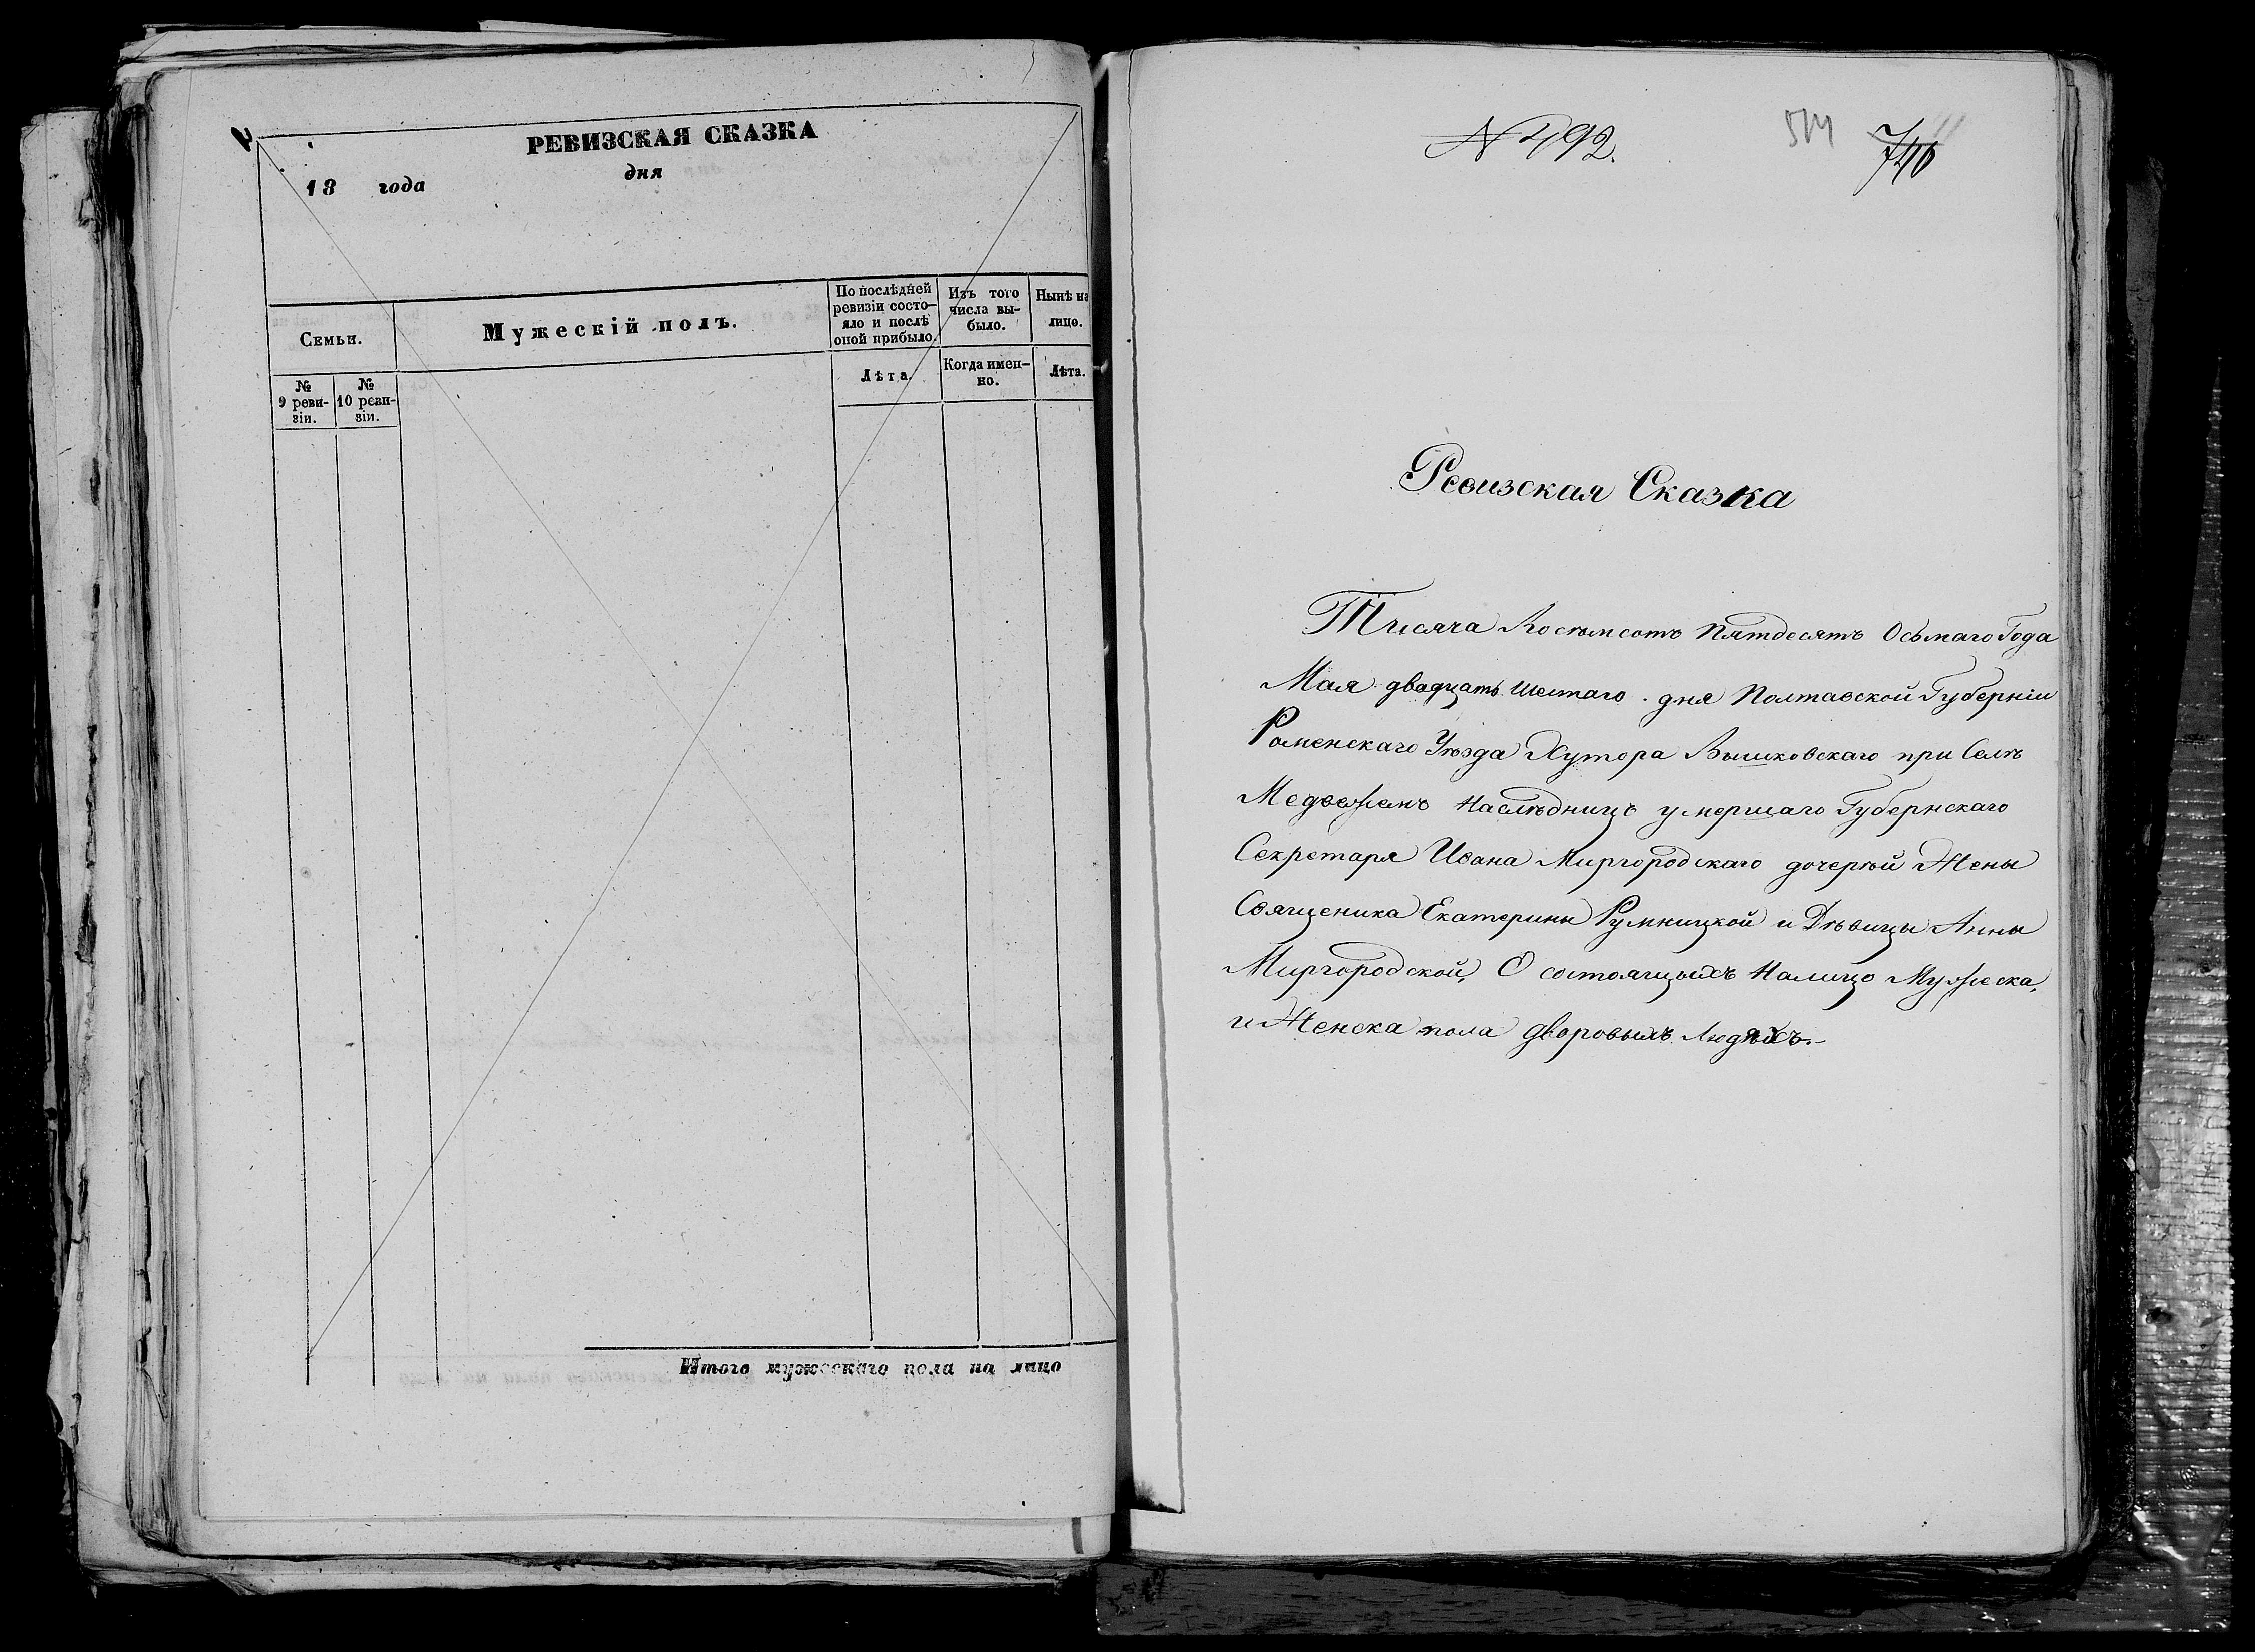 РЕВИЗСКАЯ СКАЗКА
18 года дня
Семьи.
Мужескій полъ.
По послѣдней
ревизіи состо-
яло и послѣ
оной прибыло.
Изъ того
числа вы-
было.
Нынѣ на
лицо.
№
9 реви-
зіи.
№
10 реви-
зіи.
Лѣта.
Когда имен-
но.
Лѣта.
Итого мужескаго пола на лицо
N 492.
Ревизская Сказка
Тисяча Восѣмсотъ Пятдесятъ Осьмаго Года
Мая двадцать Шестаго дня Полтавской Губерніи
Роменскаго Уѣзда Хутора Вышковскаго при Селѣ
Медвежемъ Наслѣдницъ умершаго Губернскаго
Секретаря Ивана Миргородскаго дочерѣй Жены
Священика Екатерины Румницкой и Дѣвицы Анны
Миргородской, О состоящыхъ Налицо Мужеска,
и Женска пола дворовыхъ Людяхъ.-